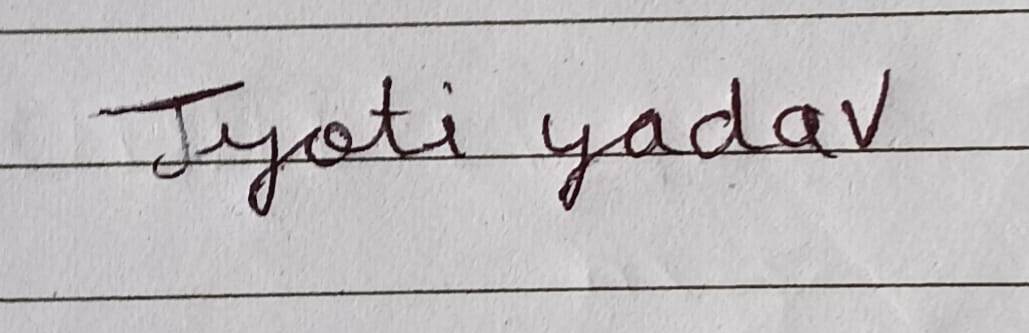 Jyoti yadav